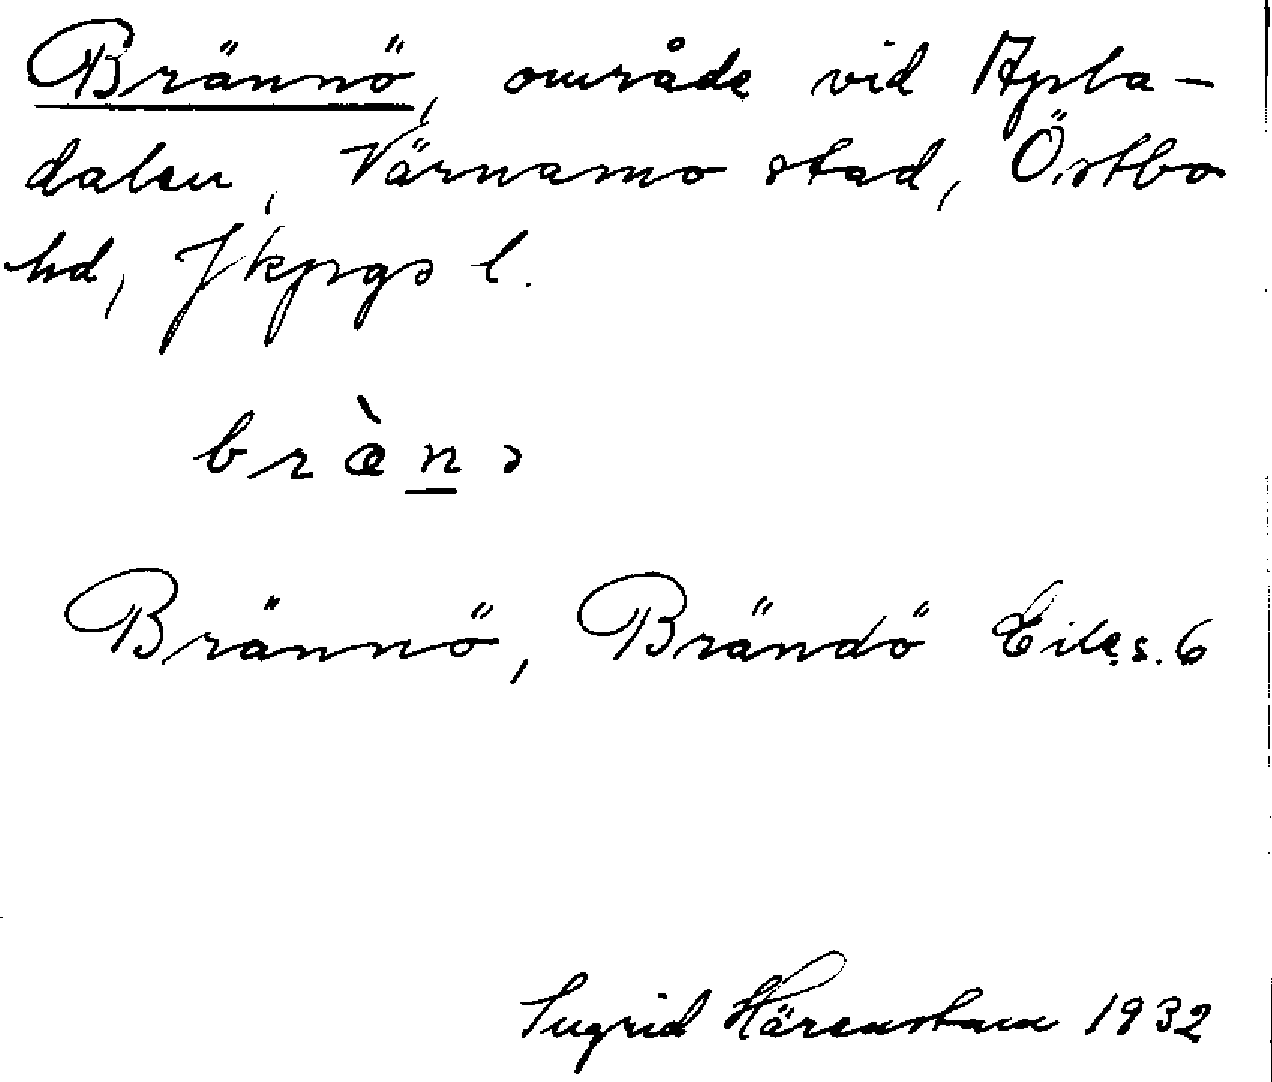 Brännö, område vid Apla-
dalen, Värnamo stad, Östbo
hd, Jkpgs l.
bræ̀n̲ə
Brännö, Brändö Eik s. 6
Ingrid Härenstam 1932